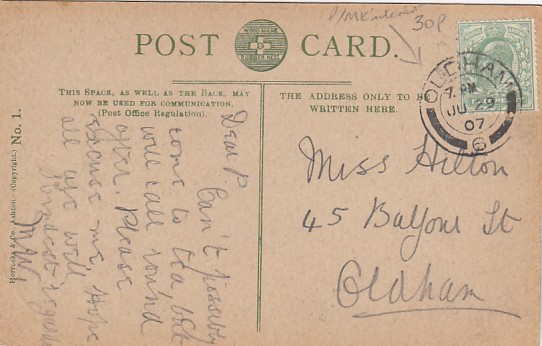 POST CARD.
WOOD-MILNE
RUBBER HEEL
30p
THIS SPACE, AS WELL AS THE BACK, MAY
NOW BE USED FOR COMMUNICATION.
(Post Office Regulation).
THE ADDRESS ONLY TO BE
WRITTEN HERE.
OLDHAM
7. PM
JU 29
07
6
Horrocks & Co. Ashton.—(Copyright.) No. 1.
Dear P.
Can't possibly
come to tea, but
will call round
after. Please
excuse me. Hope
all are well.
Kindest regards
M.W.
Miss Hilton
45 Balfour St
Oldham